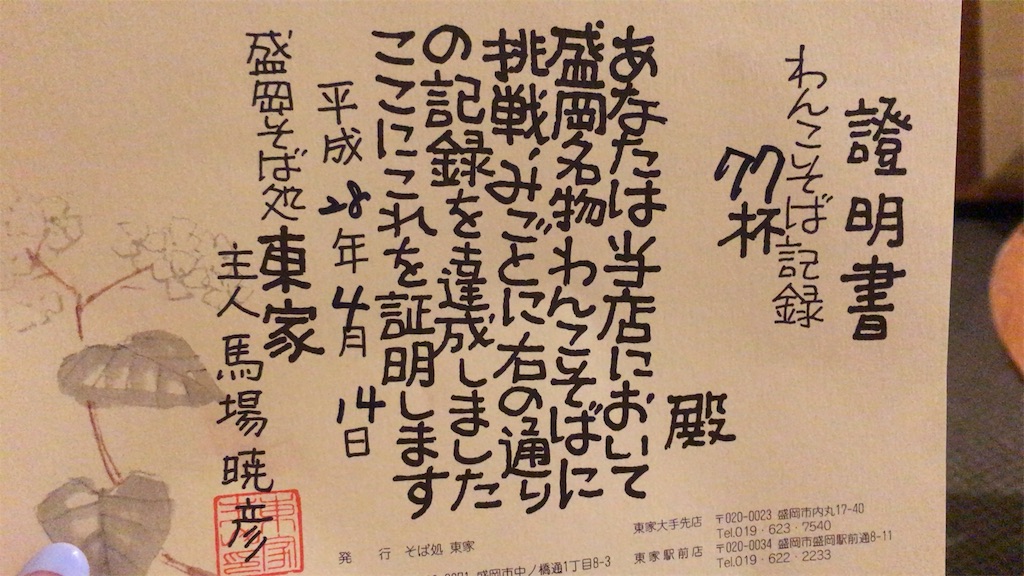 證明書
わんこそば記録
77杯
殿
あなたは当店において
盛岡名物わんこそばに
挑戦、みごとに右の通り
の記録を達成しました
ここにこれを証明します
平成28年4月14日
盛岡そば処 東家
主人 馬場暁彦
発 行 そば処 東家
盛岡市中ノ橋通1丁目8-3
東家大手先店 〒020-0023 盛岡市内丸17-40
Tel.019・623・7540
東家駅前店 〒020-0034 盛岡市盛岡駅前通8-11
Tel.019・622・2233